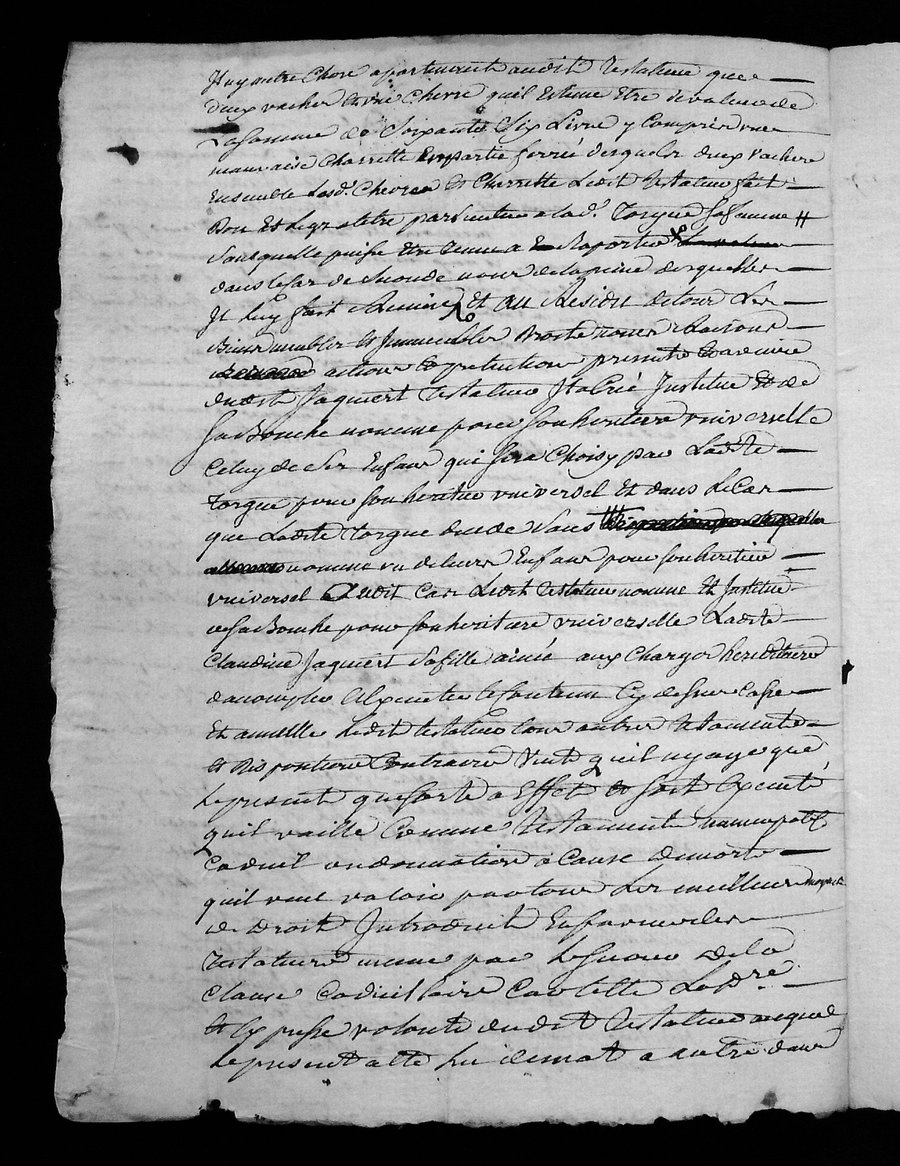 Ny autre Chose apartenant audit Testateur que
deux vaches et une Chevre quil Estime Etre de valeur de
La somme de Soixante Six Livre y Compris une
mauvaise Charrette En partie ferrée desqueles deux vaches
Ensemble Lasd. Chevre et Charrette Ledit Testateur fait
Don Et Legs a lad. Torgue sa femme
Sans quelle puisse Etre tenue a Raporter
dans le Cas de Seconde
Il Luy fait Et au Residu de tous Ses
Biens meubles et Immeubles Droits noms Raisons
actions et pretentions presents et avenir
Ledit Jaquiert testateur Il a Crée Institué Et de
Sa Bouche nommé pour son heritier universelle
Celuy de Ses Enfans qui sera Choisy par Ladite
Torgue pour son heritier universel Et dans Le Cas
que Ladite Torgue de Sans
nommer un de leurs Enfans pour son heritier
universel Audit Cas Ledit Testateur nomme Et Institue
de Sa Bouche pour son heritiere universelle Ladite
Claudine Jaquiert Sa fille ainée aux Charges hereditaire
dacomplir Et Executer le Contenu Cy dessus Casse
Et annulle Ledit testateur tous autres Testaments
et Dispositions Contraire Veut quil ny aye que
Le present qui sorte a Effet et soit Executé
quil vaille Comme Testament nuncupatif
Codicil ou donnation a Cause de mort
quil veut valoir par tous Les meilleurs moyens
de Droit Introduit En faveur des
Testateurs meme par Le secours de la
Clause Codicillaire Car telle Est
et Expresse volonté dudit Testateur auquel
Le present acte Lu de mot a autre dans